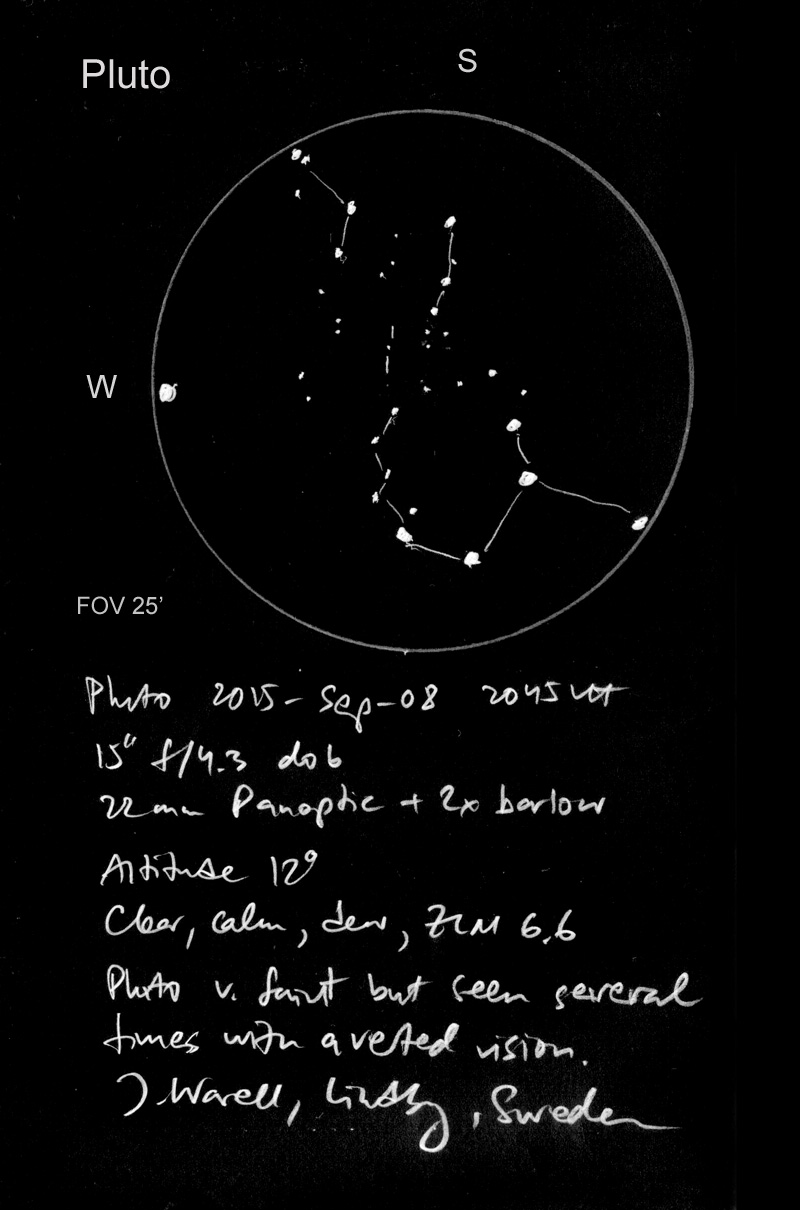 Pluto
S
W
FOV 25’
Pluto 2015-Sep-08 2045 UT
15" f/4.3 dob
22mm Panoptic + 2x barlow
Altitude 12°
Clear, calm, dew, ZLM 6.6
Pluto v. faint but seen several
times with averted vision.
J. Warell, Sweden